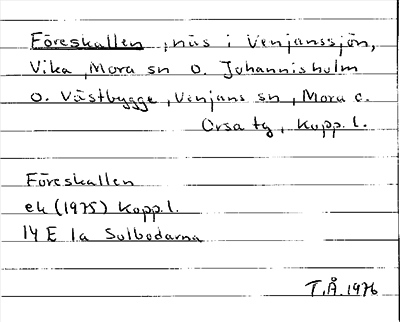 Föreskallen, näs i Venjanssjön,
Vika, Mora sn o. Johannisholm
o. Västbygge, Venjans sn, Mora o.
Orsa tg, Kopp. l.
Föreskallen
ek (1975) Kopp. l.
14 E 1a Sulbodarna
T.Å. 1976